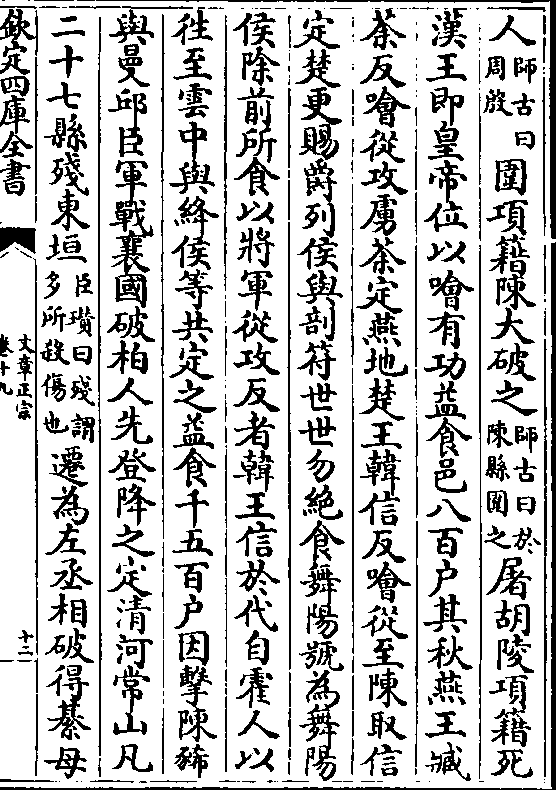 人師古曰周殷圍項籍陳大破之師古曰於陳縣圍之屠胡陵項籍死
漢王即皇帝位以噲有功益食邑八百户其秋燕王臧
荼反噲從攻虜荼定燕地楚王韓信反噲從至陳取信
定楚更賜爵列侯與剖符世世勿絶食舞陽號為舞陽
侯除前所食以將軍從攻反者韓王信於代自霍人以
徃至雲中與絳侯等共定之益食千五百户因擊陳豨
與曼邱臣軍戰襄國破柏人先登降之定清河常山凡
二十七縣殘東垣臣瓚曰殘謂多所殺傷也遷為左丞相破得綦母
欽定四庫全書
文章正宗
卷十九
十二